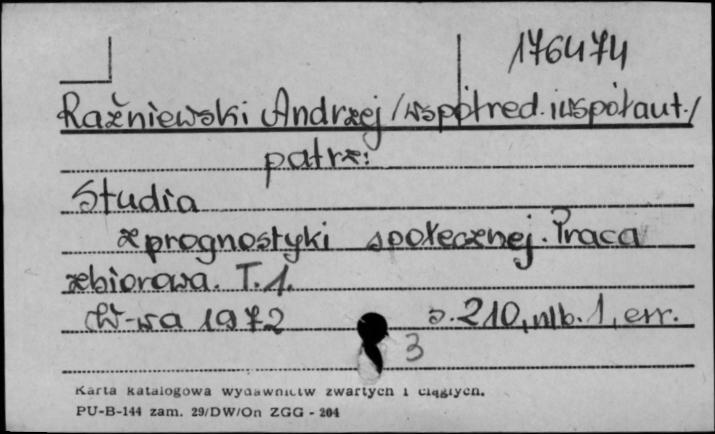 176474
Raźniewski Andrzej /współred. i współaut./
patrz:
Studia
z prognostyki społecznej. Praca
zbiorowa. T.1.
W-wa 1972 s. 210, nlb. 1, err.
3
Karta katalogowa wydawnictw zwartych i ciągłych.
PU-B-144 zam. 29/DW/On ZGG - 204